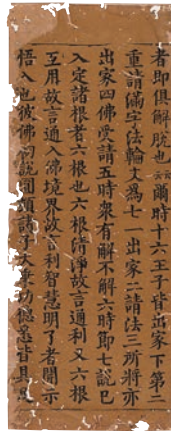 者即俱解脫也云云爾時十六王子皆出家下第二
重請滿字法輪文為七一出家二請法三所將亦
出家四佛受請五時眾有解不解六時即七說已
入定諸根者六根也六根清淨故言通利又六根
互用故言通入佛境界故言利智慧明了者開示
悟入也彼佛
說
諸子大乘功德
皆具